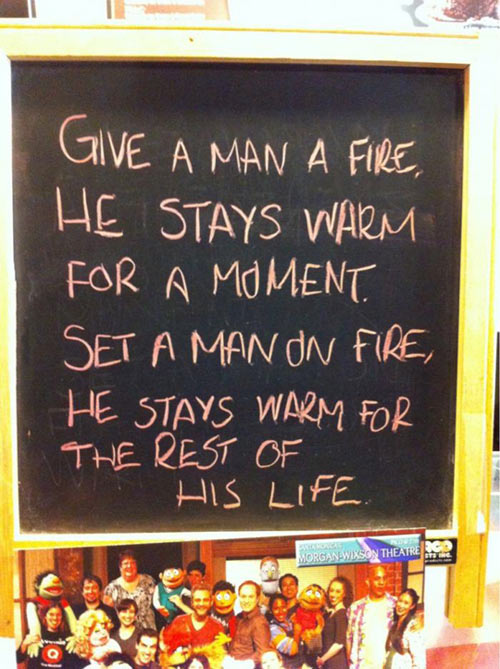 GIVE A MAN A FIRE,
HE STAYS WARM
FOR A MOMENT.
SET A MAN ON FIRE,
HE STAYS WARM FOR
THE REST OF
HIS LIFE.
MORGAN-WIXSON THEATRE